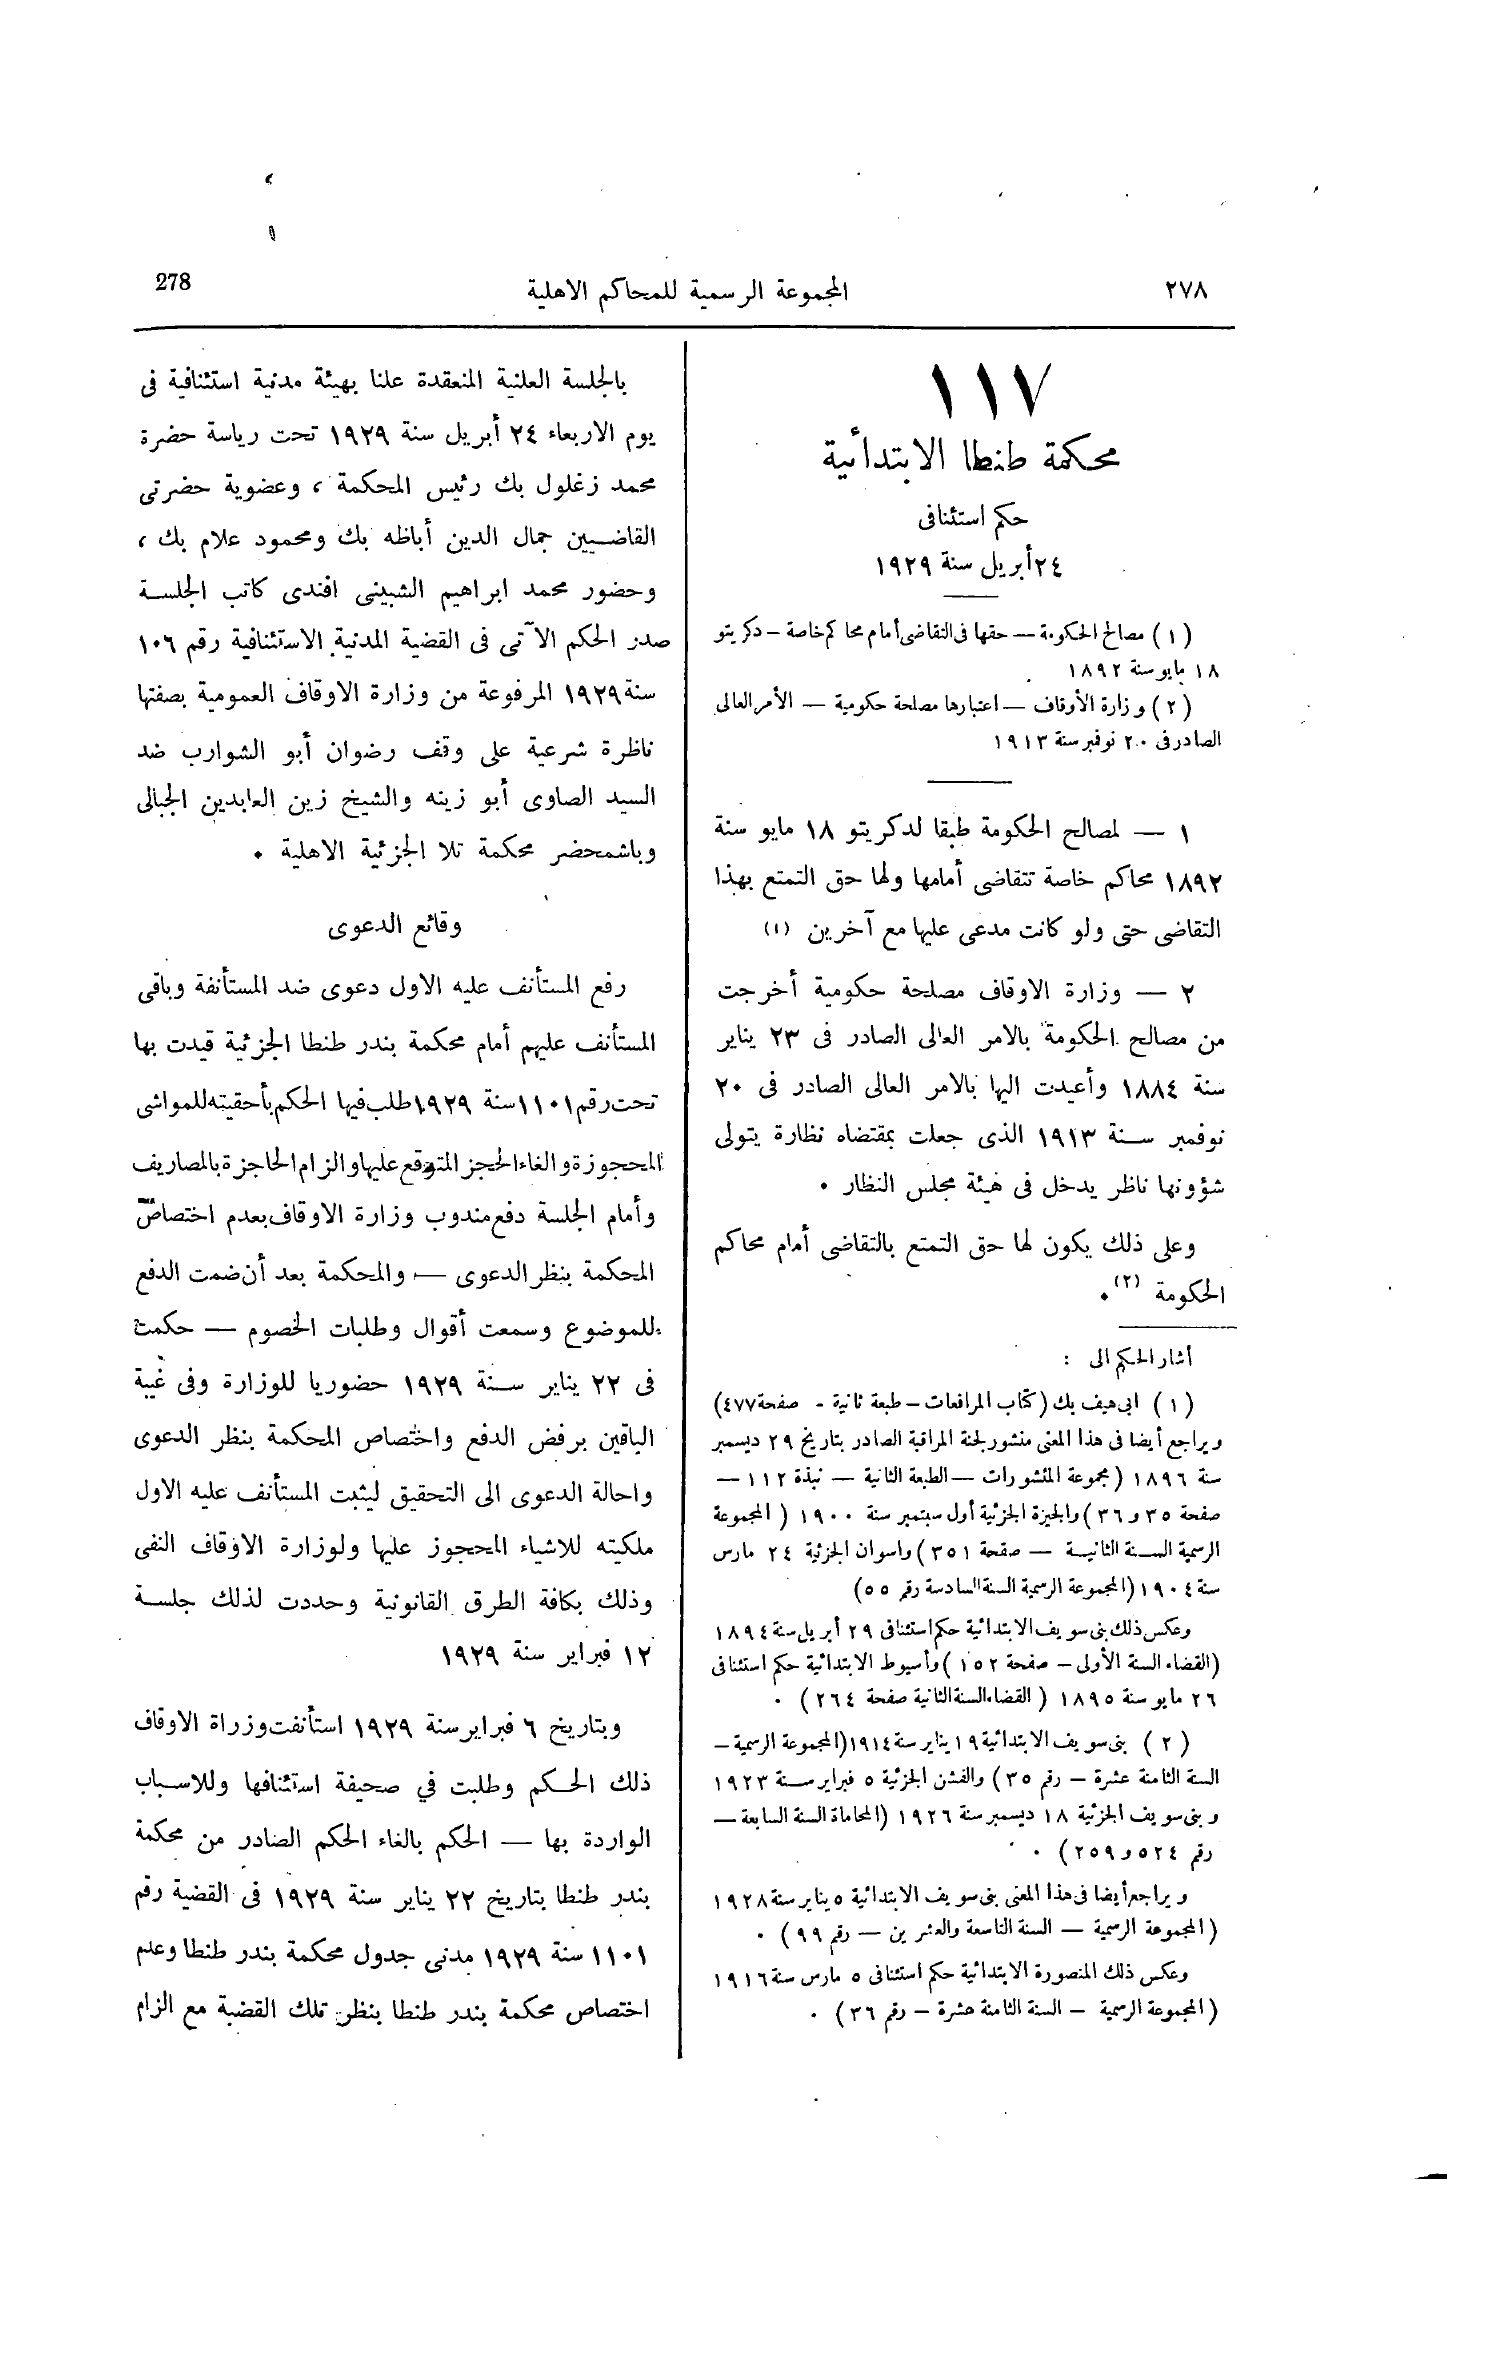 ٢٧٨
المجموعة الرسمية للمحاكم الاهلية
278
١١٧
محكمة طنطا الابتدائية
حكم استئنافى
٢٤ أبريل سنة ١٩٢٩
(١) مصالح الحكومة — حقها فى التقاضى أمام محاكم خاصة — دكريتو
١٨ مايو سنة ١٨٩٢
(٢) وزارة الأوقاف — اعتبارها مصلحة حكومية — الأمر العالى
الصادر فى ٢٠ نوفمبر سنة ١٩١٣
١ — لمصالح الحكومة طبقا لدكريتو ١٨ مايو سنة
١٨٩٢ محاكم خاصة تتقاضى أمامها ولها حق التمتع بهذا
التقاضى حتى ولو كانت مدعى عليها مع آخرين (١)
٢ — وزارة الاوقاف مصلحة حكومية أخرجت
من مصالح الحكومة بالامر العالى الصادر فى ٢٣ يناير
سنة ١٨٨٤ وأعيدت اليها بالامر العالى الصادر فى ٢٠
نوفمبر سنة ١٩١٣ الذى جعلت بمقتضاه نظارة يتولى
شؤونها ناظر يدخل فى هيئة مجلس النظار .
وعلى ذلك يكون لها حق التمتع بالتقاضى أمام محاكم
الحكومة (٢).
أشار الحكم الى :
(١) ابى هيف بك (كتاب المرافعات – طبعة ثانية - صفحة ٤٧٧)
ويراجع أيضا فى هذا المعنى منشور لجنة المراقبة الصادر بتاريخ ٢٩ ديسمبر
سنة ١٨٩٦ (مجموعة المنشورات — الطبعة الثانية — نبذة ١١٢ —
صفحة ٣٥ و ٣٦) والجيزة الجزئية أول سبتمبر سنة ١٩٠٠ (المجموعة
الرسمية السنة الثانية — صفحة ٣٥١) واسوان الجزئية ٢٤ مارس
سنة ١٩٠٤ (المجموعة الرسمية السنة السادسة رقم ٥٥)
وعكس ذلك بنى سويف الابتدائية حكم استئنافى ٢٩ أبريل سنة ١٨٩٤
(القضاء السنة الأولى – صفحة ١٥٢) وأسيوط الابتدائية حكم استئنافى
٢٦ مايو سنة ١٨٩٥ (القضاء السنة الثانية صفحة ٢٦٤) .
(٢) بنى سويف الابتدائية ١٩ يناير سنة ١٩١٤ (المجموعة الرسمية –
السنة الثامنة عشرة – رقم ٣٥) والفشن الجزئية ٥ فبراير سنة ١٩٢٣
وبنى سويف الجزئية ١٨ ديسمبر سنة ١٩٢٦ (المحاماة السنة السابعة —
رقم ٥٢٤ و ٢٥٩) .
ويراجع أيضا فى هذا المعنى بنى سويف الابتدائية ٥ يناير سنة ١٩٢٨
(المجموعة الرسمية — السنة التاسعة والعشرين — رقم ٩٩) .
وعكس ذلك المنصورة الابتدائية حكم استئنافى ٥ مارس سنة ١٩١٦
(المجموعة الرسمية – السنة الثامنة عشرة – رقم ٣٦) .
بالجلسة العلنية المنعقدة علنا بهيئة مدنية استئنافية فى
يوم الاربعاء ٢٤ أبريل سنة ١٩٢٩ تحت رياسة حضرة
محمد زغلول بك رئيس المحكمة ، وعضوية حضرتى
القاضيين جمال الدين أباظه بك ومحمود علام بك ،
وحضور محمد ابراهيم الشبينى افندى كاتب الجلسة
صدر الحكم الآتى فى القضية المدنية الاستئنافية رقم ١٠٦
سنة ١٩٢٩ المرفوعة من وزارة الاوقاف العمومية بصفتها
ناظرة شرعية على وقف رضوان أبو الشوارب ضد
السيد الصاوى أبو زينه والشيخ زين العابدين الجبالى
وباشمحضر محكمة تلا الجزئية الاهلية .
وقائع الدعوى
رفع المستأنف عليه الاول دعوى ضد المستأنفة وباقى
المستأنف عليهم أمام محكمة بندر طنطا الجزئية قيدت بها
تحت رقم ١١٠١ سنة ١٩٢٩ طلب فيها الحكم بأحقيته للمواشى
المحجوزة والغاء الحجز المتوقع عليها والزام الحاجزة بالمصاريف
وأمام الجلسة دفع مندوب وزارة الاوقاف بعدم اختصاص
المحكمة بنظر الدعوى — والمحكمة بعد أن ضمت الدفع
للموضوع وسمعت أقوال وطلبات الخصوم — حكمت
فى ٢٢ يناير سنة ١٩٢٩ حضوريا للوزارة وفى غيبة
الباقين برفض الدفع واختصاص المحكمة بنظر الدعوى
واحالة الدعوى الى التحقيق ليثبت المستأنف عليه الاول
ملكيته للاشياء المحجوز عليها ولوزارة الاوقاف النفى
وذلك بكافة الطرق القانونية وحددت لذلك جلسة
١٢ فبراير سنة ١٩٢٩
وبتاريخ ٦ فبراير سنة ١٩٢٩ استأنفت وزراة الاوقاف
ذلك الحكم وطلبت في صحيفة استئنافها وللاسباب
الواردة بها — الحكم بالغاء الحكم الصادر من محكمة
بندر طنطا بتاريخ ٢٢ يناير سنة ١٩٢٩ فى القضية رقم
١١٠١ سنة ١٩٢٩ مدنى جدول محكمة بندر طنطا وعدم
اختصاص محكمة بندر طنطا بنظر تلك القضية مع الزام